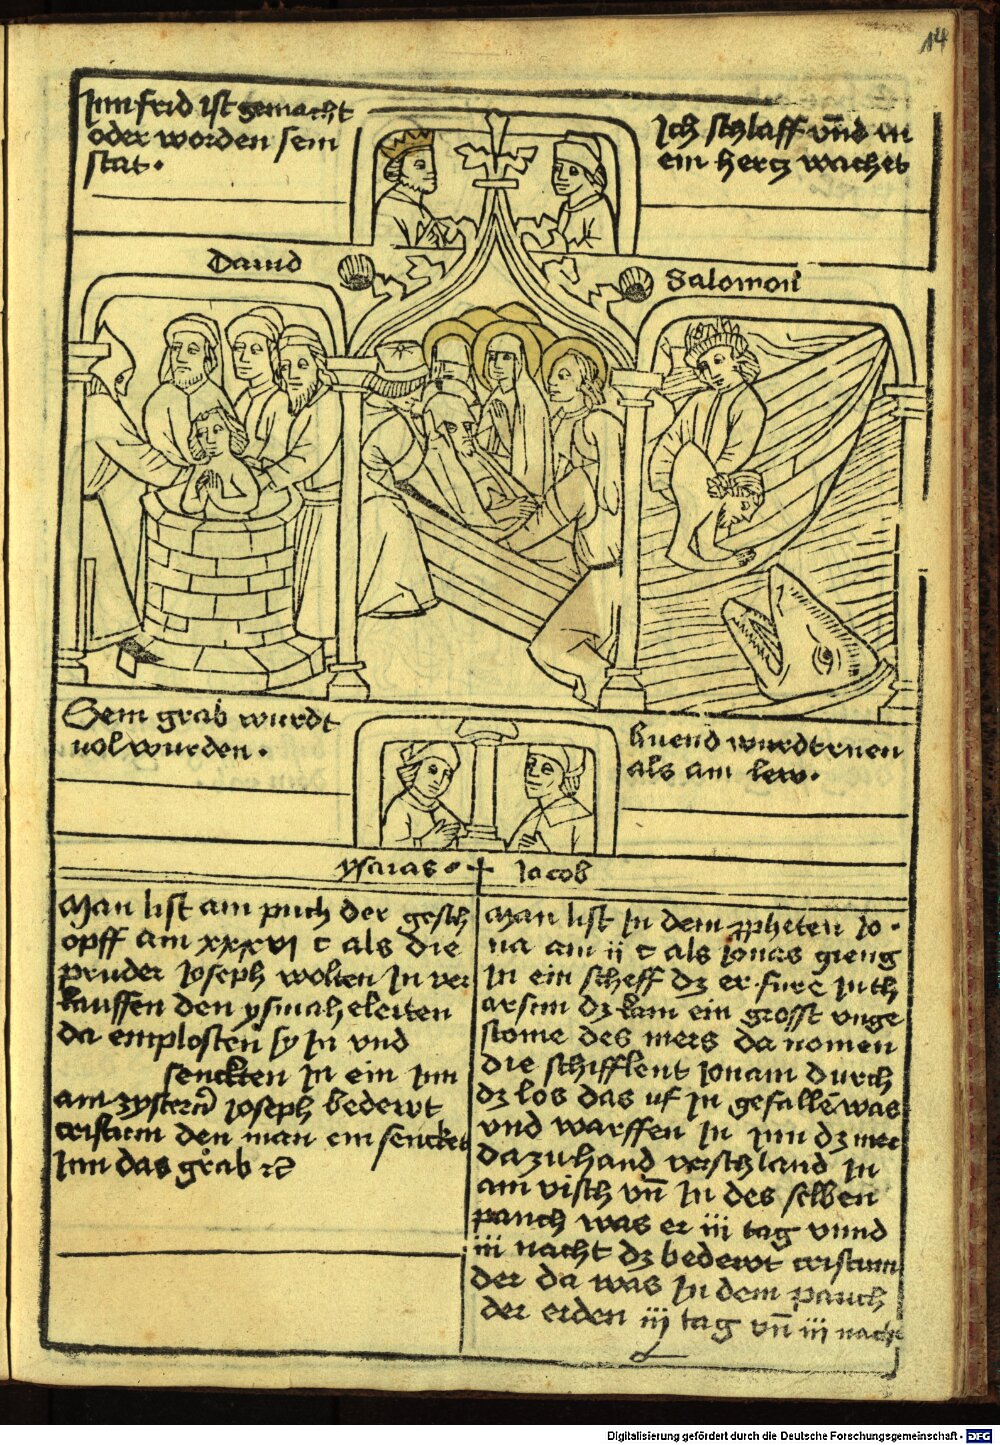 14
Inn frid ist gemacht
oder worden sein
stat.
Ich schlaff vnd m
ein hertz wachet
Dauid
Salomon
Sein grab wurdt
vol wurden.
als ain lew.
ysaias + Jacob
Man list am puch der gesch
opff am xxxvi c als die
pruder Joseph wolten In ver
kauffen den ysmaheleiten
da emplosten sy In vnd
senckten In ein Inn
am zystern Joseph bedewt
cristum den man ein sencket
Inn das grab
Man list In dem ꝓpheten Jo
na am ii c als Jonas gieng
In ein scheff dz er fure In th
arsim dz kam ein grosst vnge
stome des mers da nomen
die schifflent Jonam durch
dz los das uf In gefallē was
vnd warffen In Inn dz mer
da zuhand verschland In
ain visch vn̄ In des selben
pauch was er iii tag vnnd
iii nacht dz bedewt cristum
der da was In dem pauch
der erden iii tag vn̄ iii nacht
Digitalisierung gefördert durch die Deutsche Forschungsgemeinschaft - DFG